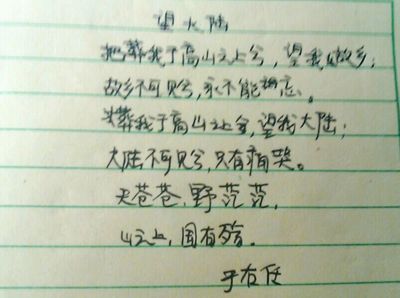 望大陆
把葬我于高山之上兮，望我故乡；
故乡不可见兮，永不能忘。
葬我于高山之上兮，望我大陆；
大陆不可见兮，只有痛哭。
天苍苍，野茫茫，
山之上，国有殇。
于右任